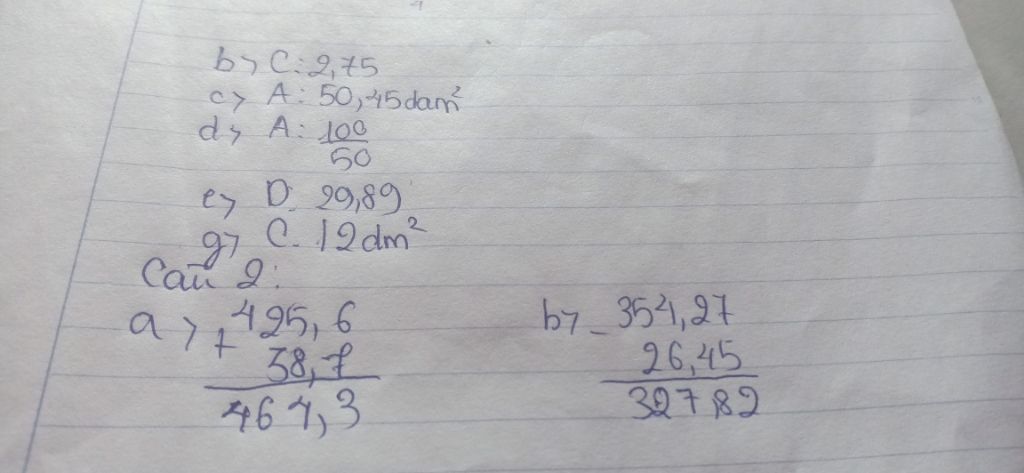 b> C: 2,75
c> A: 50,45dam²
d> A: 100
50
e> D. 29,89
g> C. 12dm²
Câu 2:
a> + 425,6 b> - 354,27
38,7 26,45
464,3 327,82